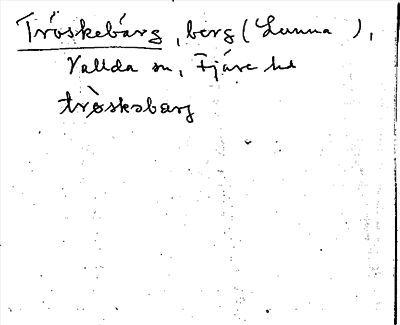 Tröskebärg, berg (Lunna ),
Vallda sn, Fjäre hd
trö̀skəbarg